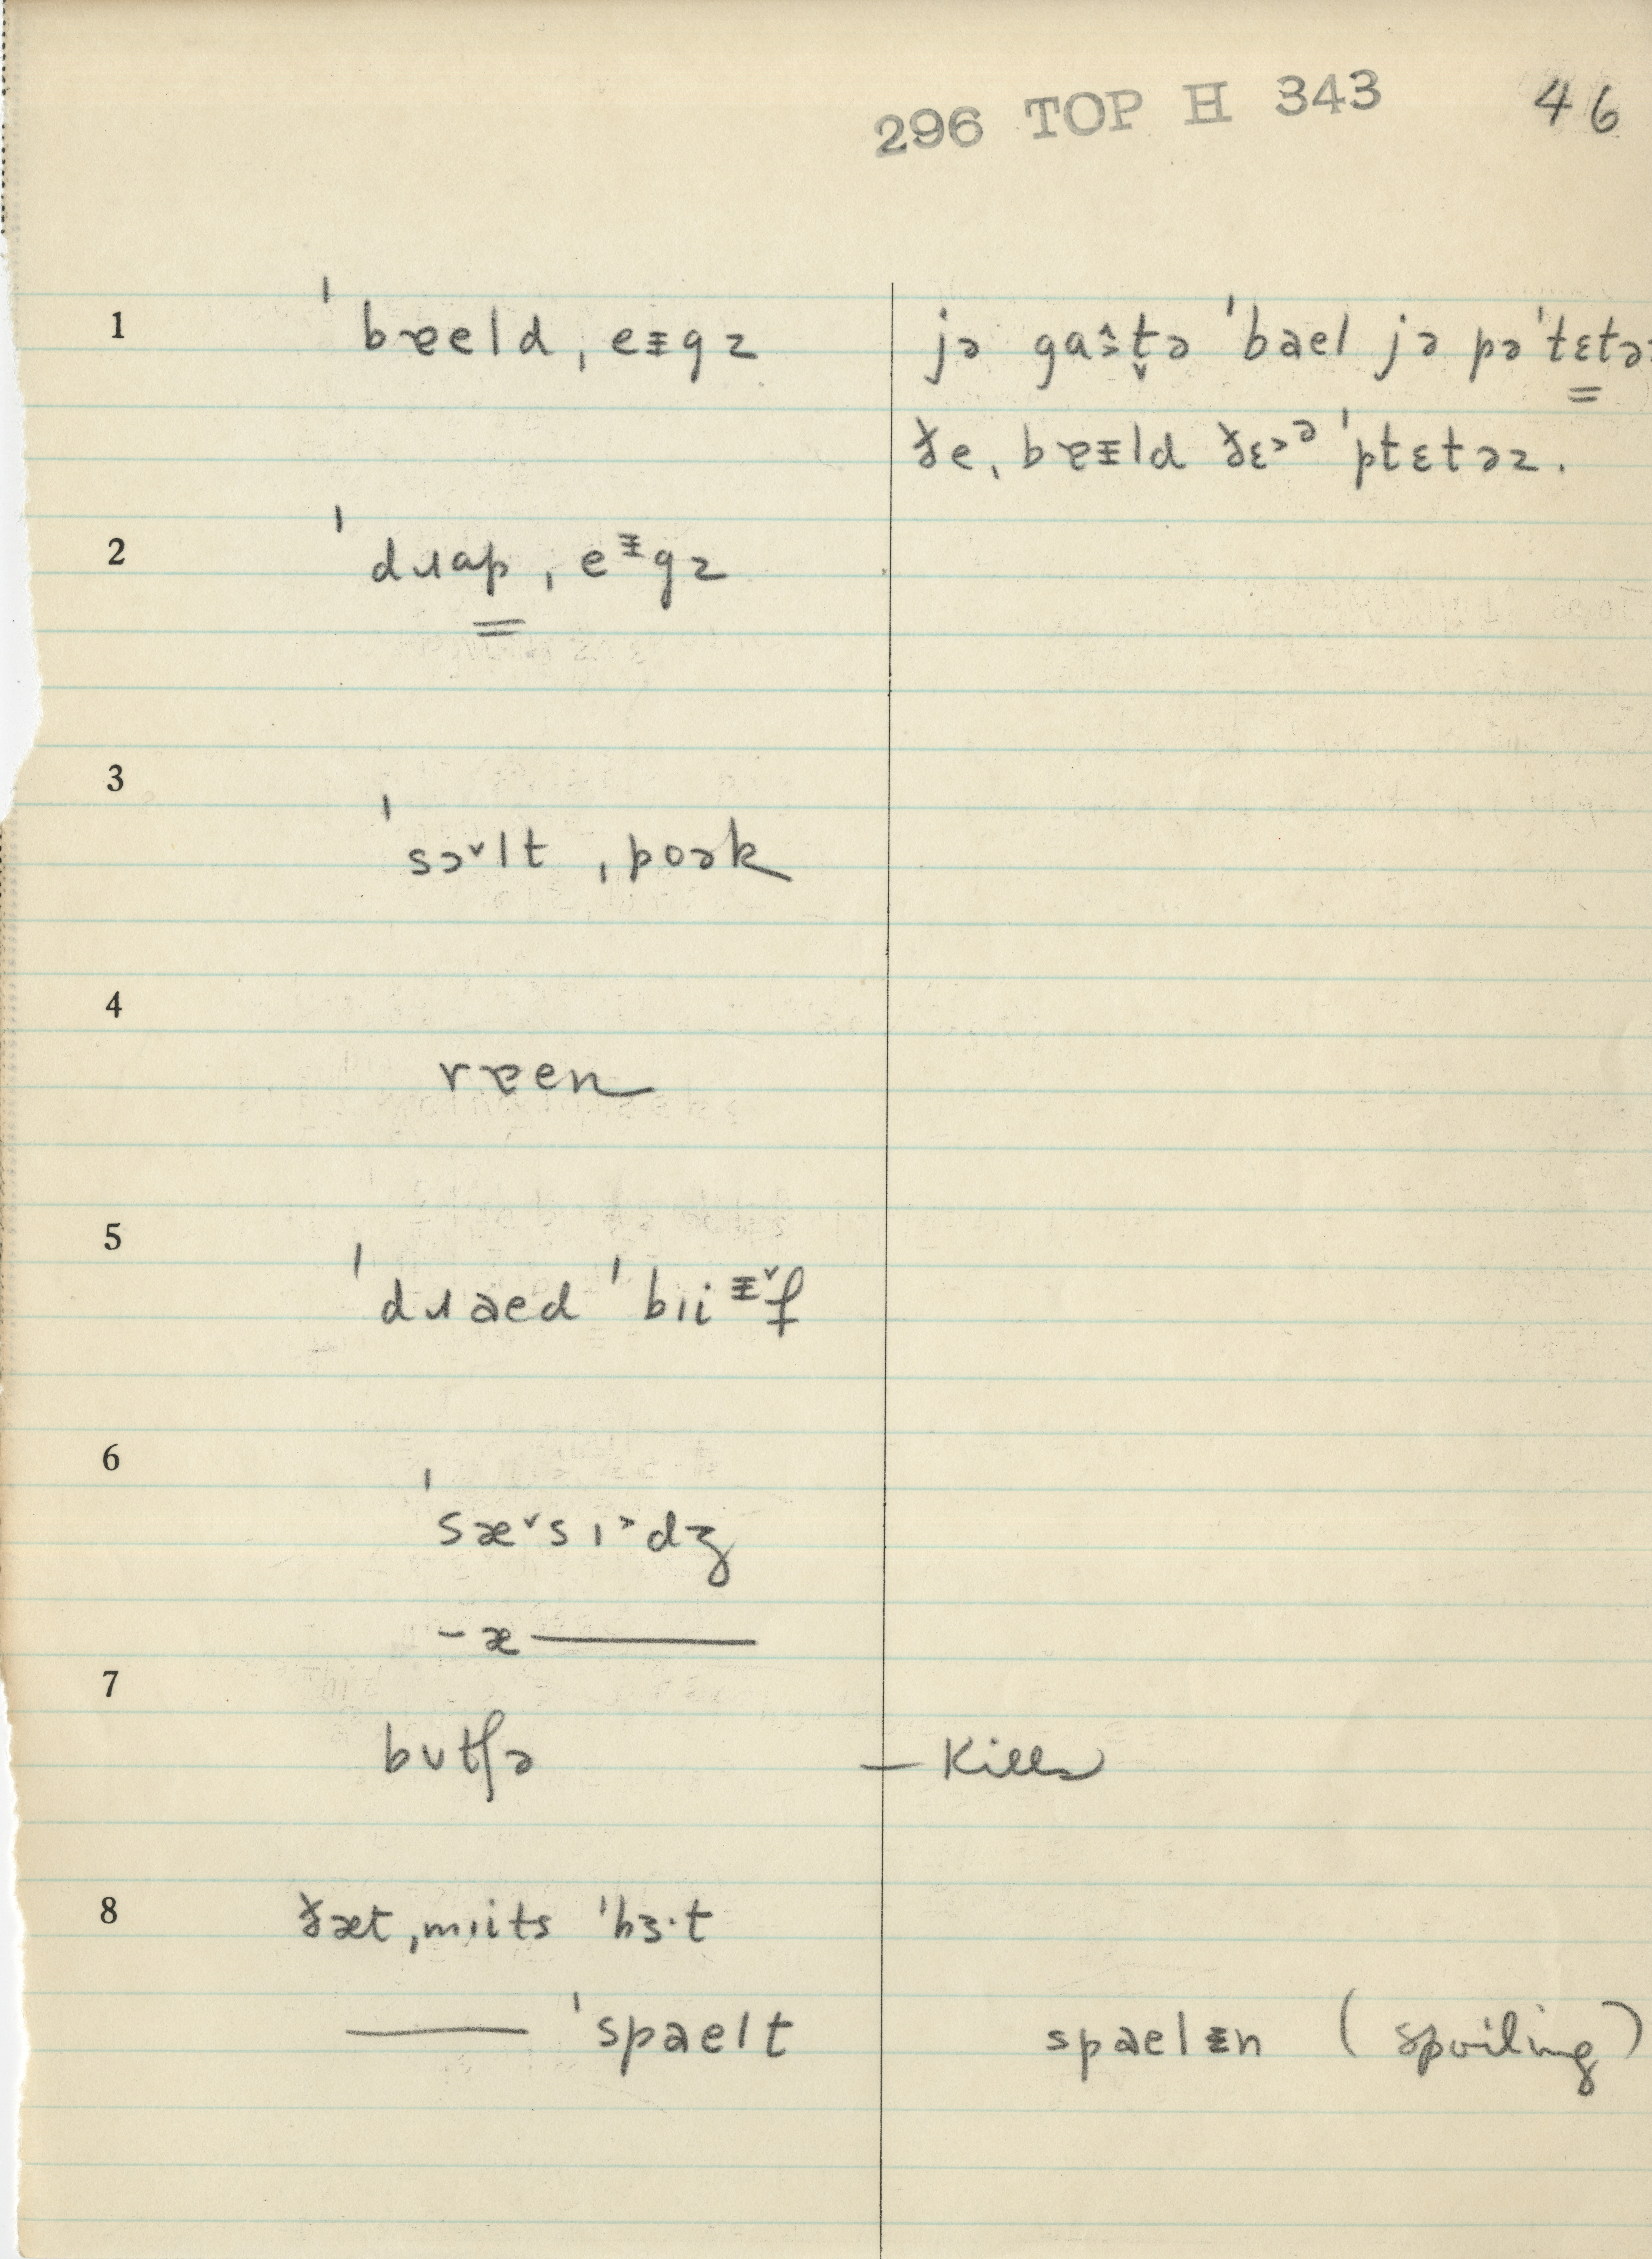 296 TOP H 343 46
1 ˈbɐeld ˌeᵻgz jə gaŝt̬ə ˈbael jə pəˈtɛtəz
ðe ˌbɐᵻld ðɛ˃ᵊ ˈptɛtəz.
2 ˈdɹap ˌeᵻgz
3 ˈsɔ˅lt ˌpoək
4 rɐen
5 ˈdɹaed ˈbɪiᵻ˅f
6 ˈsæ˅sɪ˃dʒ
-æ———
7 bʊtʃə — Kills
8 ðæt ˌmɪits ˈhɜ·t
——— ˈspaelt spaelᵻn (spoiling)